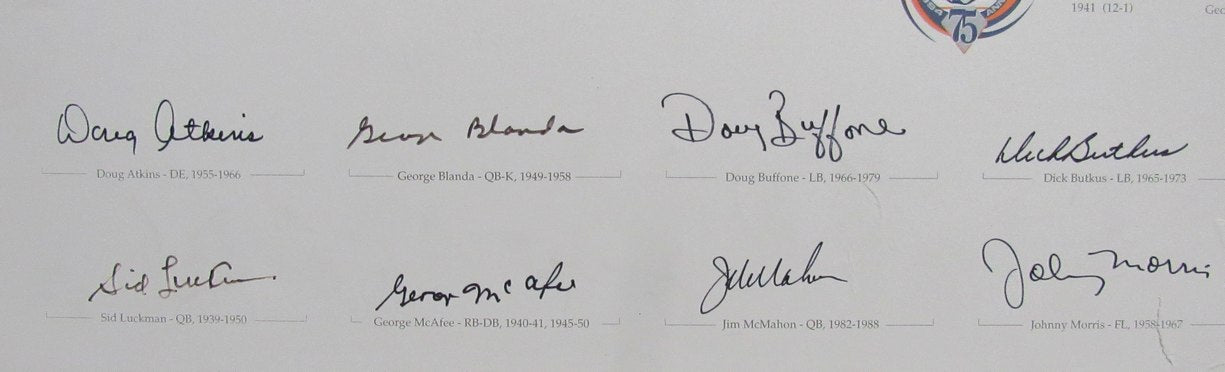 75
1941 (12-1)
Geo
Doug Atkins
George Blanda
Doug Buffone
Dick Butkus
Doug Atkins - DE, 1955-1966
George Blanda - QB-K, 1949-1958
Doug Buffone - LB, 1966-1979
Dick Butkus - LB, 1965-1973
Sid Luckman
George McAfee
Jim McMahon
Johnny Morris
Sid Luckman - QB, 1939-1950
George McAfee - RB-DB, 1940-41, 1945-50
Jim McMahon - QB, 1982-1988
Johnny Morris - FL, 1958-1967